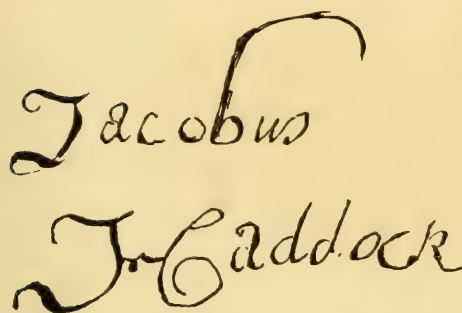 Jacobus
Caddock